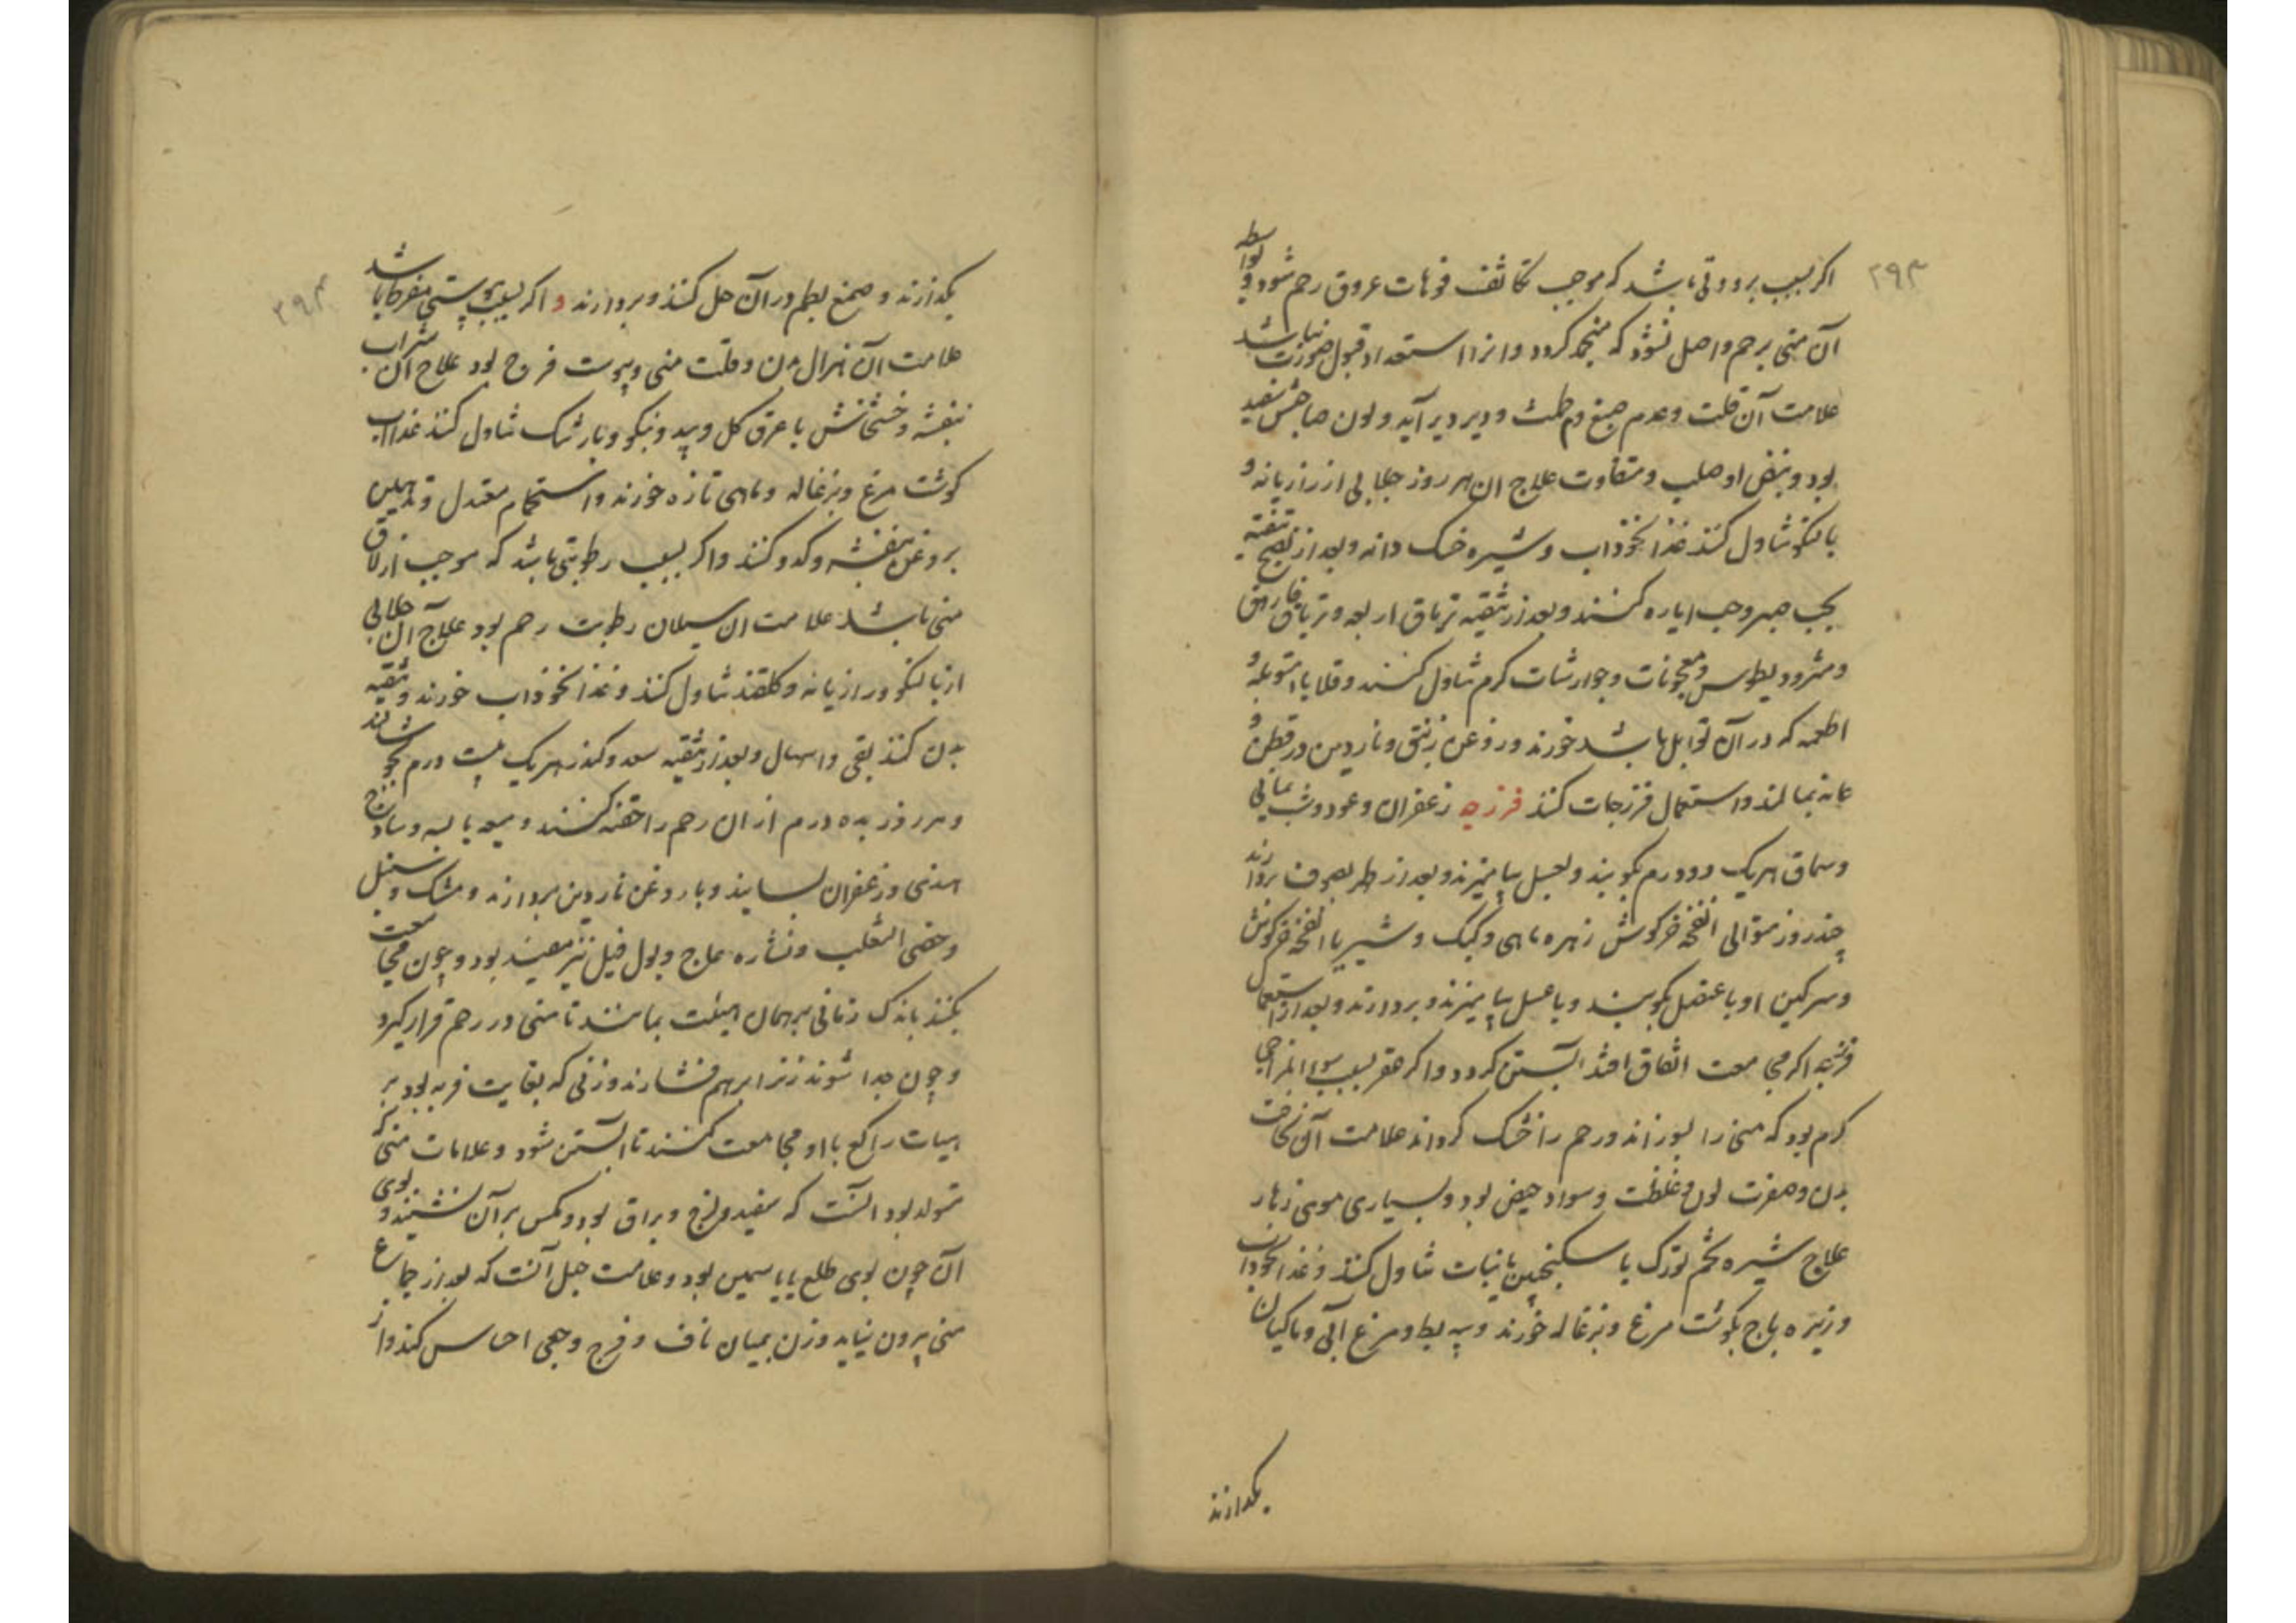 ۲۹۳
اکر بسبب برودتی باشد که موجب تکاثف فوهات عروق رحم شود و بواسطه
آن منی برحم واصل نشود که منجمد کردد و انرا استعداد قبول صورت نباشد
علامت آن قلت و عدم صبغ دم طمث و دیر دیر آید و لون صاحبش سفید
بود و نبض او صلب و متفاوت علاج ان هر روز جلابی از رازیانه و
بالنکو تناول کنند غذا نخوداب و شیره خسک دانه و بعد از نضج تنقیه
بحب صبر و حب ایاره کنند و بعد از تنقیه تریاق اربعه و تریاق فاروق
و مثرودیطوس و معجونات و جوارشات کرم تناول کنند و قلایا متوبله و
اطعمه که در آن توابل باشد خورند و روغن زنبق و ناردین در قطن و
عانه بمالند و استعمال فرزجات کنند فرزجه زعفران و عود و شب یمانی
و سماق هریک دو درم بکوبند و بعسل بیامیزند و بعد از طهر بصوف بردارند
چند روز متوالی انفخه خرکوش زهره ماهی و کبک و شیر یا انفخه خرکوش
و سرکین او با عنصل بکوبند و با عسل بیامیزند و بردارند و بعد از استعمال
فرزجه اکر مجامعت اتفاق افتد آبستن کردد و اکر عقر بسبب سوء المزاجی
کرم بود که منی را بسوزاند و رحم را خشک کرداند علامت آن نحافت
بدن و صفرت لون و غلظت و سواد حیض بود و بسیاری موی زهار
علاج شیره تخم تورک با سکنجبین یا نبات تناول کنند و غذا نخوداب
و زیره باج بکوشت مرغ و بزغاله خورند و پیه بط و مرغ آبی و ماکیان
بکدازند
۲۹۴
بکدازند و صمغ بطم در آن حل کنند و بردارند و اکر بسبب یبوستی مفرط باشد
علامت آن هزال بدن و قلت منی و یبوست فرج بود علاج آن شراب
بنفشه و خشخاش با عرق کل و بید و بنکو و بارتنک تناول کنند غذا اب
کوشت مرغ و بزغاله و ماهی تازه خورند و استحمام معتدل و تدهین
بروغن بنفشه و کدو کنند و اکر بسبب رطوبتی باشد که موجب ازلاق
منی باشد علامت ان سیلان رطوبت رحم بود علاج آن جلابی
از بالنکو و رازیانه و کلقند تناول کنند و غذا نخوداب خورند و تنقیه
بدن کنند بقی و اسهال و بعد از تنقیه سعد و کندر هریک بیست درم بجوشانند
و هر روز بده درم از ان رحم را حقنه کنند و میعه یابسه و ساذج
هندی و زعفران بسایند و با روغن ناردین بردارند و مشک و سنبل
و خصی الثعلب و نشاره عاج و بول فیل نیز مفید بود و چون مجامعت
بکنند باندک زمانی بر همان هیئت بمانند تا منی در رحم قرار کیرد
و چون جدا شوند زنرا برهم فشارند و زنی که بغایت فربه بود بر
هیات راکع با او مجامعت کنند تا آبستن شود و علامات منی که
متولد بود آنست که سفید و لزج و براق بود و مکس بر آن نشیند و بوی
آن چون بوی طلع یا یاسمین بود و علامت حبل آنست که بعد از جماع
منی بیرون نیاید و زن بمیان ناف و فرج وجعی احساس کند و از